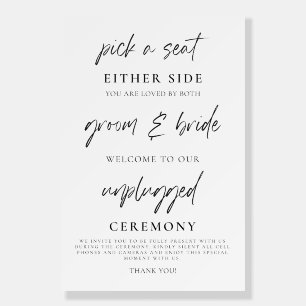 pick a seat
EITHER SIDE
YOU ARE LOVED BY BOTH
groom & bride
WELCOME TO OUR
unplugged
CEREMONY
WE INVITE YOU TO BE FULLY PRESENT WITH US
DURING THE CEREMONY. KINDLY SILENT ALL CELL
PHONES AND CAMERAS AND ENJOY THIS SPECIAL
MOMENT WITH US.
THANK YOU!